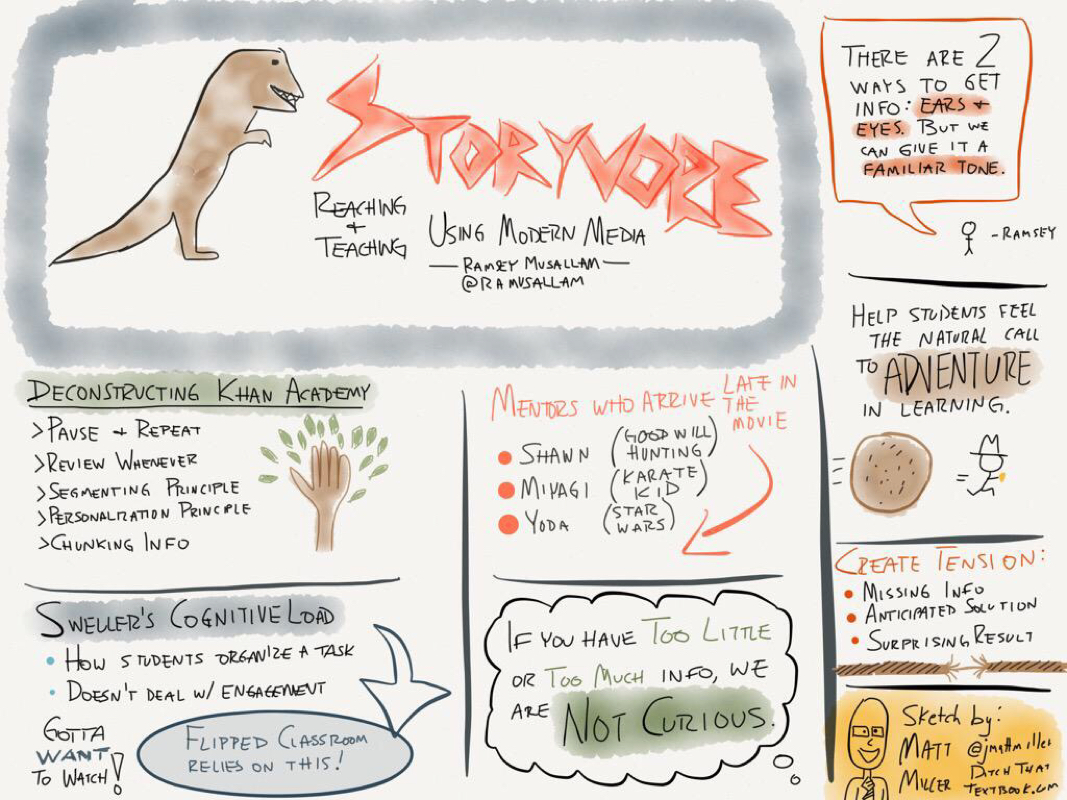 STORYVORE
REACHING
+
TEACHING
USING MODERN MEDIA
— RAMSEY MUSALLAM —
@RAMUSALLAM
THERE ARE 2
WAYS TO GET
INFO: EARS +
EYES. BUT WE
CAN GIVE IT A
FAMILIAR TONE.
-RAMSEY
HELP STUDENTS FEEL
THE NATURAL CALL
TO ADVENTURE
IN LEARNING.
DECONSTRUCTING KHAN ACADEMY
>PAUSE + REPEAT
>REVIEW WHENEVER
>SEGMENTING PRINCIPLE
>PERSONALIZATION PRINCIPLE
>CHUNKING INFO
MENTORS WHO ARRIVE LATE IN
THE
MOVIE
• SHAWN (GOOD WILL
HUNTING)
• MIYAGI (KARATE
KID)
• YODA (STAR
WARS)
CREATE TENSION:
• MISSING INFO
• ANTICIPATED SOLUTION
• SURPRISING RESULT
SWELLER'S COGNITIVE LOAD
• HOW STUDENTS ORGANIZE A TASK
• DOESN'T DEAL W/ ENGAGEMENT
GOTTA
WANT
TO WATCH!
FLIPPED CLASSROOM
RELIES ON THIS!
IF YOU HAVE TOO LITTLE
OR TOO MUCH INFO, WE
ARE NOT CURIOUS.
Sketch by:
MATT @jmattmiller
MILLER DITCH THAT
TEXTBOOK.COM